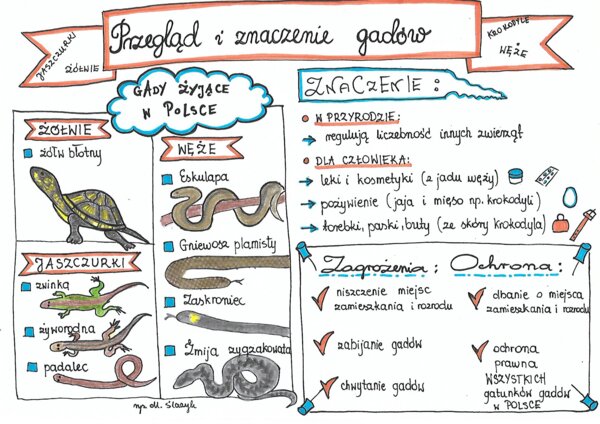 Przegląd i znaczenie gadów
JASZCZURKI
ŻÓŁWIE
KROKODYLE
WĘŻE
GADY ŻYJĄCE
W POLSCE
ŻÓŁWIE
żółw błotny
JASZCZURKI
zwinka
żyworodna
padalec
WĘŻE
Eskulapa
Gniewosz plamisty
Zaskroniec
Żmija zygzakowata
ZNACZENIE:
W PRZYRODZIE:
→ regulują liczebność innych zwierząt
DLA CZŁOWIEKA:
→ leki i kosmetyki (z jadu węży)
→ pożywienie (jaja i mięso np. krokodyli)
→ torebki, paski, buty (ze skóry krokodyla)
Zagrożenia:
niszczenie miejsc
zamieszkania i rozrodu
zabijanie gadów
chwytanie gadów
Ochrona:
dbanie o miejsca
zamieszkania i rozrodu
ochrona
prawna
WSZYSTKICH
gatunków gadów
w POLSCE